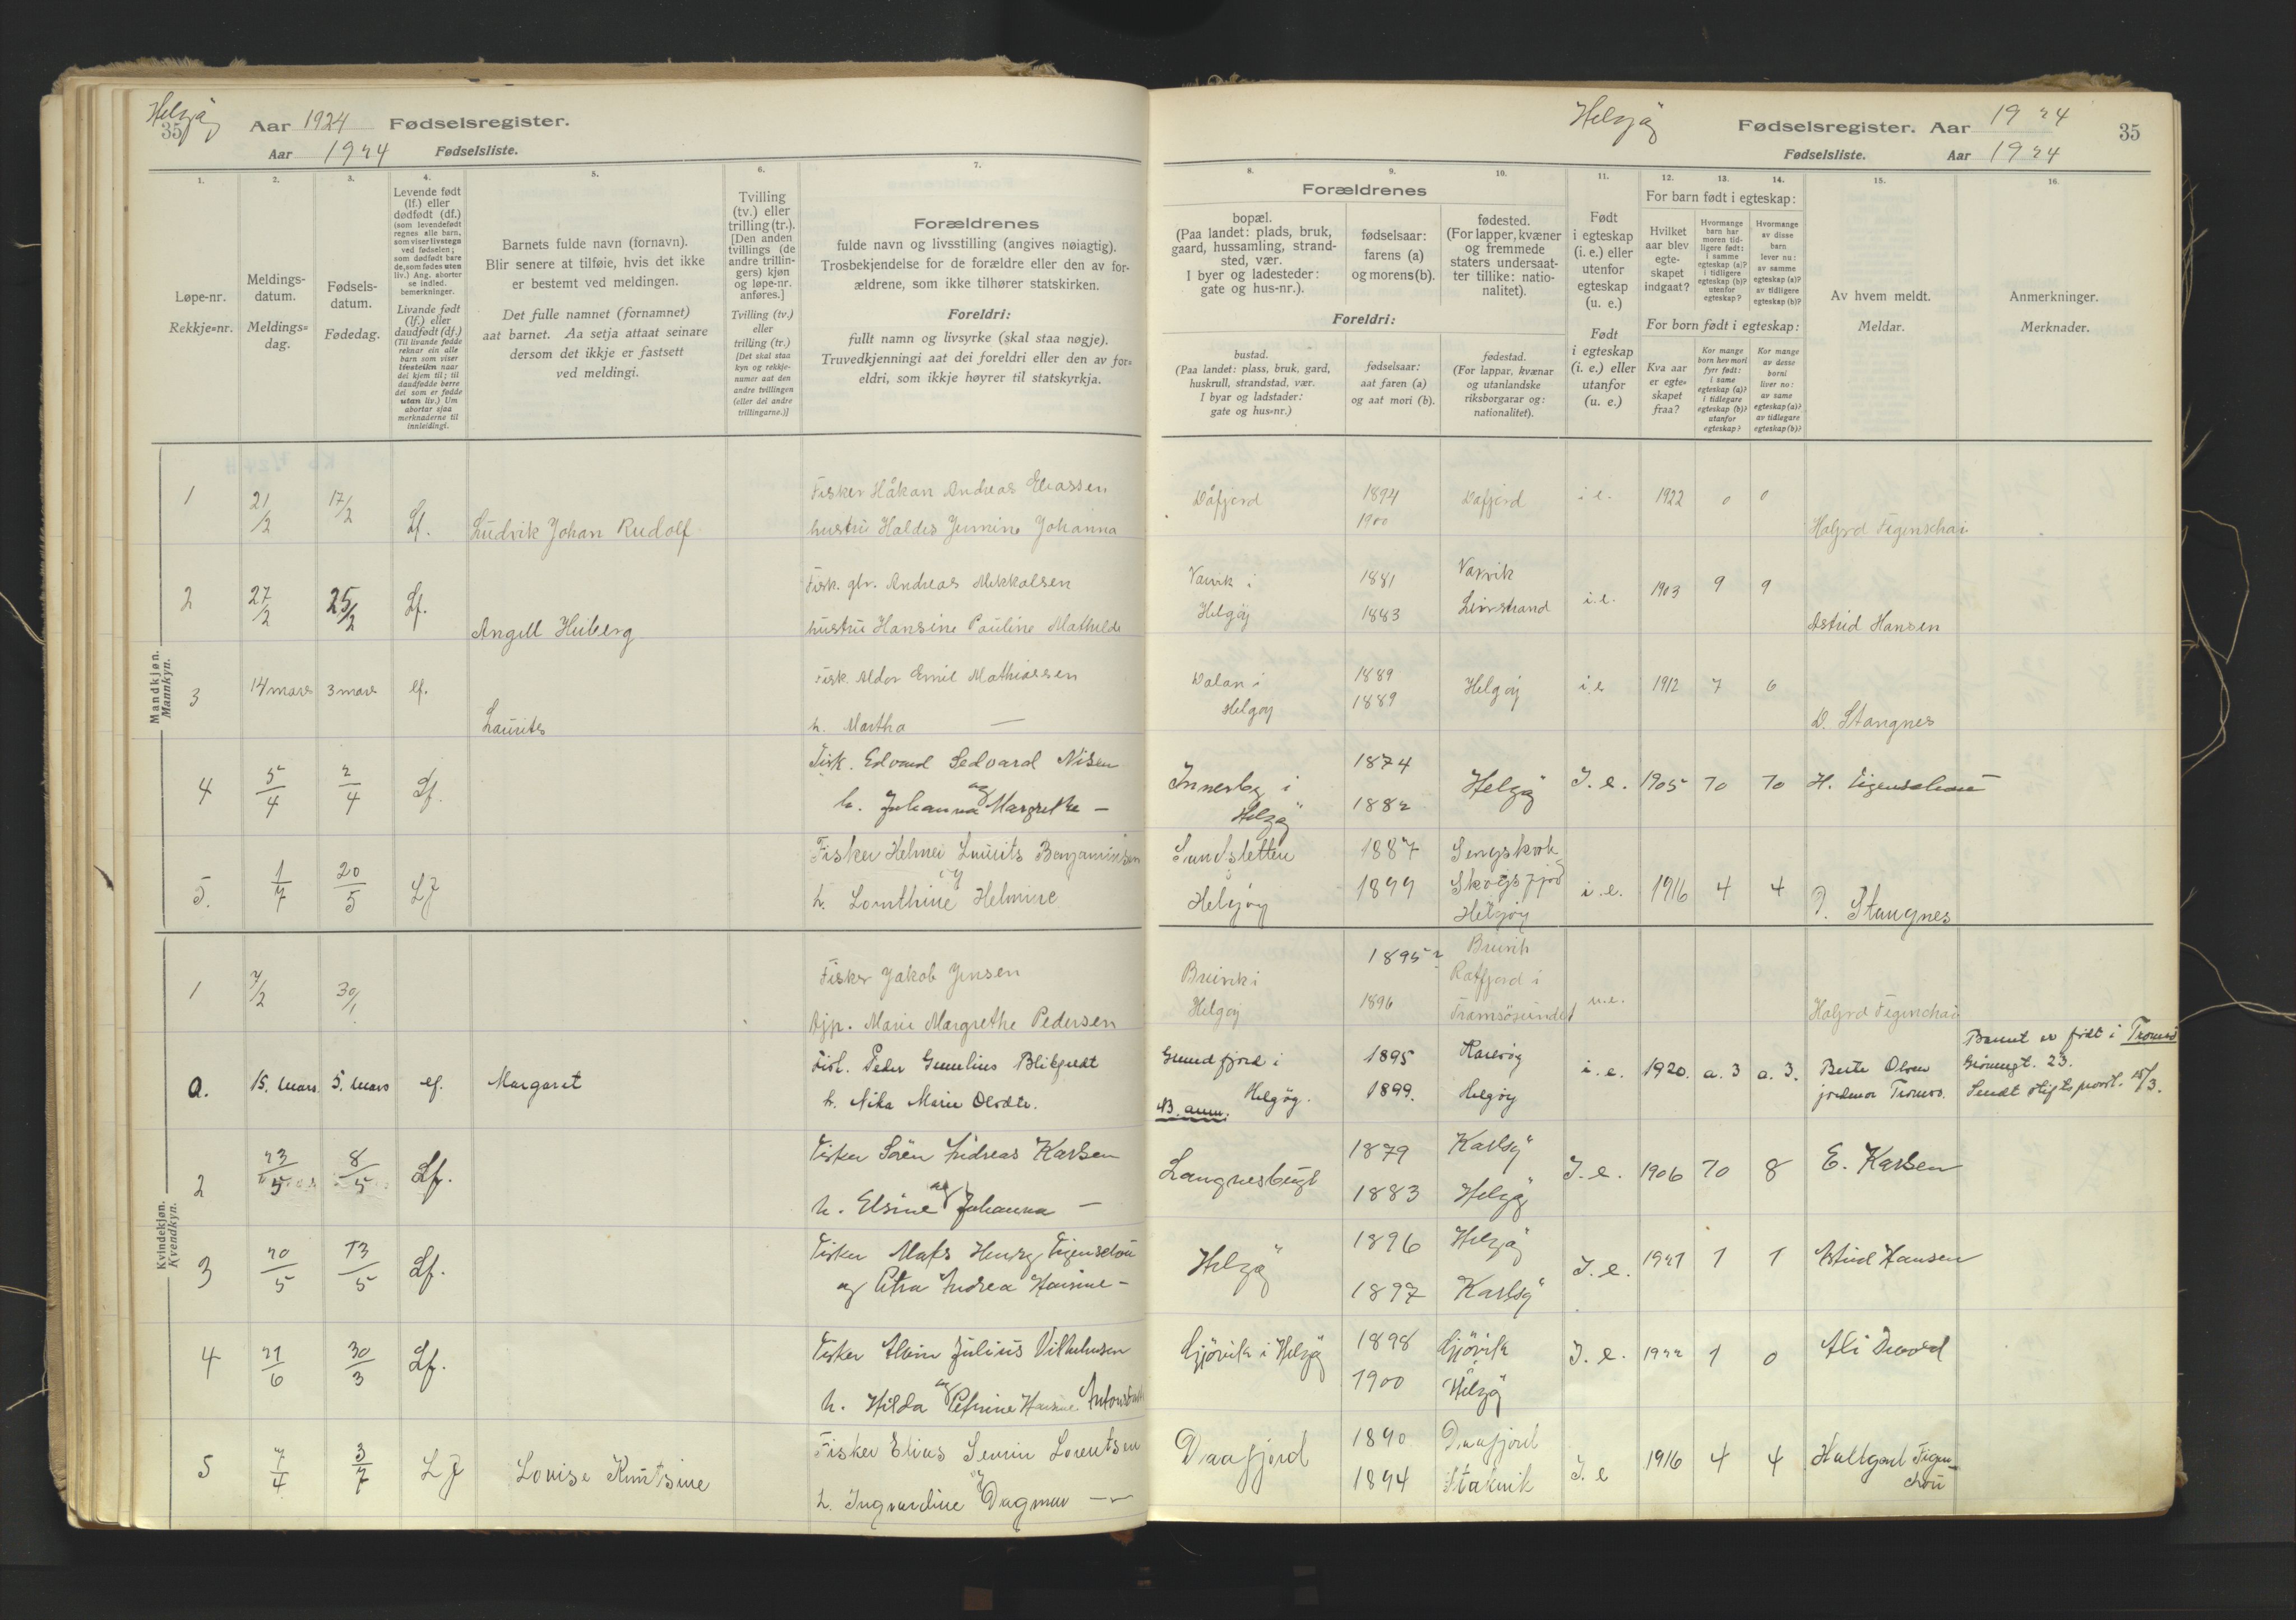 Helgøy
35
Aar 1924 Fødselsregister.
Aar 1924 Fødselsliste.
1.
2.
3.
4.
5.
6.
7.
Løpe-nr.
Rekkje=nr.
Meldings-
datum.
Meldings=
dag.
Fødsels-
datum.
Fødedag.
Levende født
(lf.) eller
dødfødt (df.)
(som levendefødt
regnes alle barn,
som viser livstegn
ved fødselen;
som dødfødt bare
de, som fødes uten
liv.) Ang. aborter
se indled.
bemerkninger.
Livande født
(lf.) eller
daudfødt (df.)
(Til livande fødde
reknar ein alle
barn som viser
livsteikn naar
dei kjem til; til
daudfødde berre
dei som er fødde
utan liv.) Um
abortar sjaa
merknaderne til
innleidingi.
Barnets fulde navn (fornavn).
Blir senere at tilføie, hvis det ikke
er bestemt ved meldingen.
Det fulle namnet (fornamnet)
aat barnet. Aa setja attaat seinare
dersom det ikkje er fastsett
ved meldingi.
Tvilling
(tv.) eller
trilling (tr.).
[Den anden
tvillings (de
andre trillin-
gers) kjøn
og løpe-nr.
anføres.]
Tvilling (tv.)
eller
trilling (tr.)
[Det skal staa
kyn og rekkje-
numer aat den
andre tvillingen
(eller dei andre
trillingarne.)]
Forældrenes
fulde navn og livsstilling (angives nøiagtig).
Trosbekjendelse for de forældre eller den av for-
ældrene, som ikke tilhører statskirken.
Foreldri:
fullt namn og livsyrke (skal staa nøgje).
Truvedkjenningi aat dei foreldri eller den av for=
eldri, som ikkje høyrer til statskyrkja.
Mandkjøn.
Mannkyn.
1 21/2 17/2 Lf. Ludvik Johan Rudolf
Fisker Håkan Andreas Eliassen
hustru Haldis Jenmine Johanna
2 27/2 25/2 Lf. Angell Huiberg
Fisk. gbr. Andreas Mikkalsen
hustru Hansine Pauline Mathilde
3 14 mars 3 mars lf. Laurits
Fisk. Aldor Emil Mathiassen
h. Martha —
4 5/4 2/4 Lf.
Fisk. Edvard Sedvard Nilsen
og
h. Johanna Margrethe —
5. 1/7 20/5 Lf
Fisker Helmer Laurits Benjaminsen
og
h. Lornthine Helmine
Kvindekjøn.
Kvendkyn.
1 7/2 30/1
Fisker Jakob Jensen
Pjp. Marie Margrethe Pedersen
a. 15. mars 5. mars lf. Margaret
Fisk. Peder Cornelius Blikfeldt
h. Nika Marie Olvdte.
2 23/5 8/5 Lf.
Fisker Sören Andreas Karlsen
og
h. Elsine Johanna —
3 20/5 13/5 Lf.
Fisker Mats Henry Figenschou
og Petra Andrea Hansine —
4 21/6 30/3 Lf.
Fisker Alvin Julius Vilhelmsen
og
h. Hilda Petrine Hansine
5 7/4 3/7 Lf Louise Knutsine
Fisker Elias Semin Lorentsen
og
h. Ingvardine Dagmar —
Helgöy
Fødselsregister. Aar 1924
35
Fødselsliste. Aar 1924
8.
9.
10.
11.
12.
13.
14.
15.
16.
Forældrenes
bopæl.
(Paa landet: plads, bruk,
gaard, hussamling, strand-
sted, vær.
I byer og ladesteder:
gate og hus-nr.).
fødselsaar:
farens (a)
og morens (b).
fødested.
(For lapper, kvæner
og fremmede
staters undersaat-
ter tillike: natio-
nalitet).
Foreldri:
bustad.
(Paa landet: plass, bruk, gard,
huskrull, strandstad, vær.
I byar og ladstader:
gate og hus=nr.)
fødselsaar:
aat faren (a)
og aat mori (b).
fødestad.
(For lappar, kvænar
og utanlandske
riksborgarar og:
nationalitet).
Født
i egteskap
(i. e.) eller
utenfor
egteskap
(u. e.)
Født
i egteskap
(i. e.) eller
utanfor
(u. e.)
For barn født i egteskap:
Hvilket
aar blev
egte-
skapet
indgaat?
Hvormange
barn har
moren tid-
ligere født:
i samme
egteskap (a)?
i tidligere
egteskap (b)?
utenfor
egteskap?
Hvormange
av disse
barn
lever nu:
av samme
egteskap (a)?
av tidligere
egteskap (b)?
For born født i egteskap:
Kva aar
er egte=
skapet
fraa?
Kor mange
born hev mori
fyrr født:
i same
egteskap (a)?
i tidlegare
egteskap (b)?
utanfor
egteskap?
Kor mange
av desse
borni
liver no:
av same
egteskap (a)?
av tidlegare
egteskap (b)?
Av hvem meldt.
Meldar.
Anmerkninger.
Merknader.
Dåfjord 1894 Dåfjord i e. 1922 0 0
1900
Halgrd Figenschau
Vavik i 1881 Vavik i.e. 1903 9 9
Helgöy 1883
Astrid Hansen
Dalan i 1889 Helgöy i e 1912 7 6
Helgöy 1889
D. Stangnes
Innerby i 1874 Helgöy I. e. 1905 10 10 H. Figenschau
Helgöy 1882
Sundsletten 1887
Helgöy 1899 Skogsfjord i.e. 1916 4 4 D. Stangnes
Helgöy
Bruvik i 1895? Bruvik
Ratfjord i
Helgöy 1896 Tromsösundet u.e.
Halgrd Figenschau
Grundfjord i 1895 Karlsöy i. e. 1920. a. 3 a. 3.
Helgöy. 1899. Helgöy
NB. anm.
Berte Olsen
jordmor Tromsø.
Barnet er født i Tromsö
Grönnegt. 23.
Sendt stiftsprovst. 15/3.
Langnesbugt 1879 Karlsöy I. e. 1906 10 8 E. Karlsen
1883 Helgöy
Helgöy 1896 Helgöy I. e. 1921 1 1 Astrid Hansen
1897 Karlsöy
Gjövik i Helgöy 1898 Gjövik I. e. 1922 1 0
1900 i Helgöy
Daafjord 1890 Daafjord I. e 1916 4 4
1894 Stakvik
Hallgerd Figen-
schou